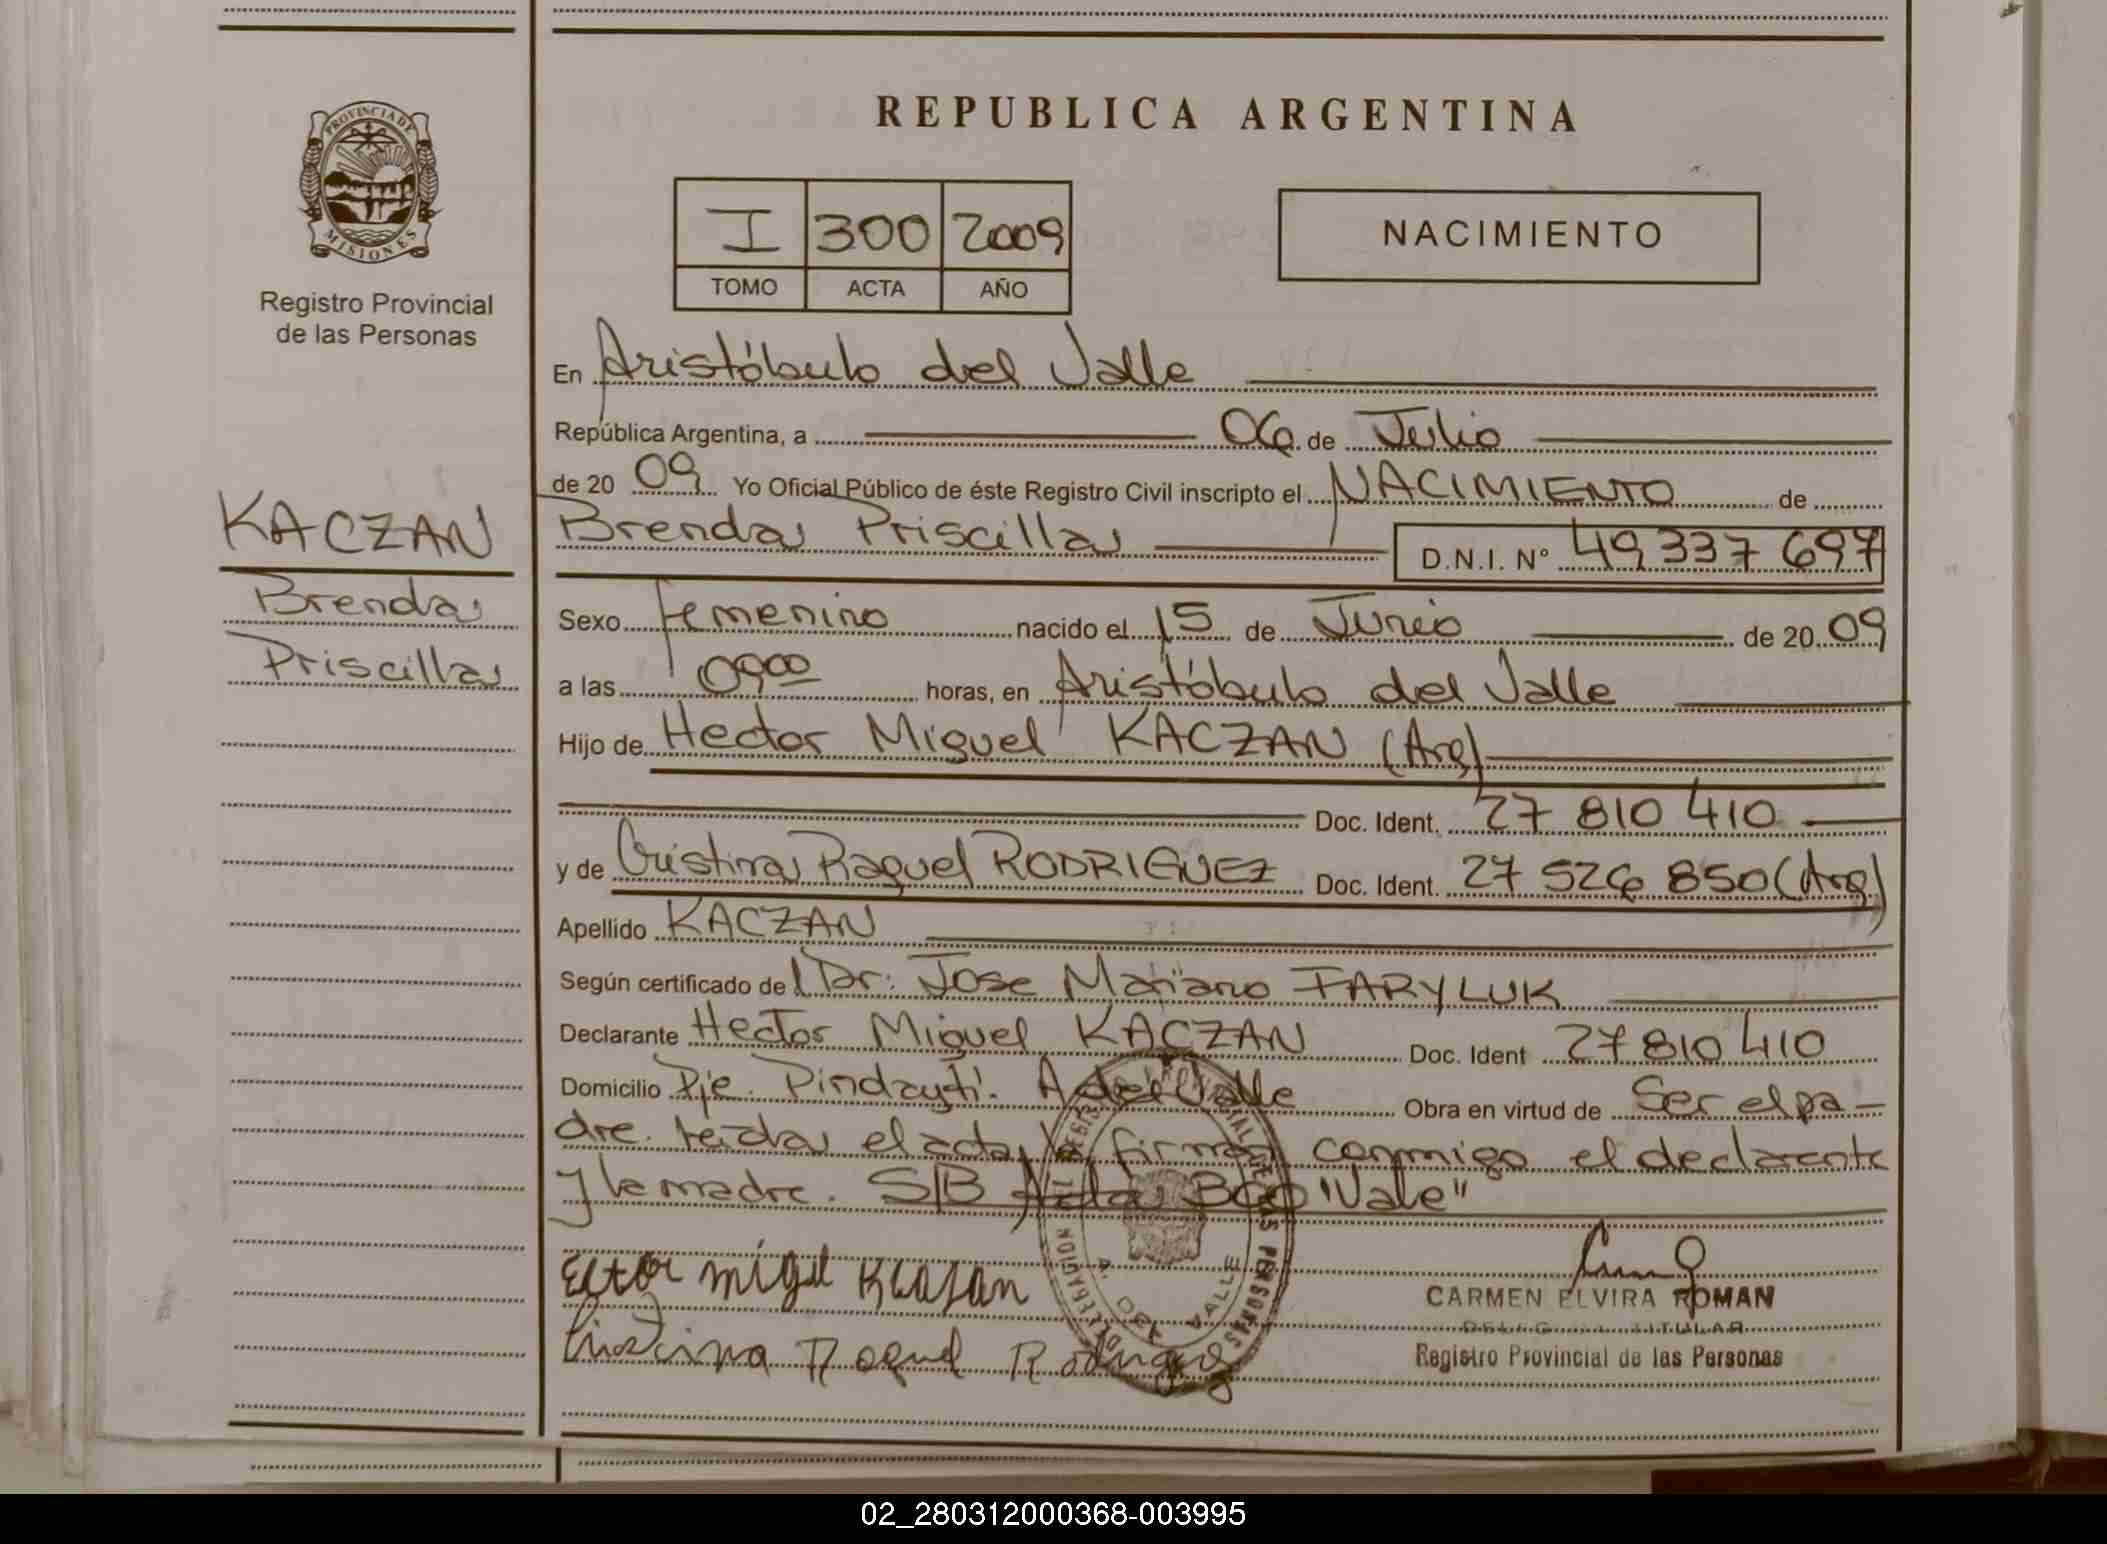 REPUBLICA ARGENTINA
PROVINCIA DE
MISIONES
Registro Provincial
de las Personas
I 300 2009
TOMO ACTA AÑO
NACIMIENTO
En Aristóbulo del Valle
República Argentina, a 06 de Julio
de 20 09 Yo Oficial Público de éste Registro Civil inscripto el NACIMIENTO de
KACZAN
Brenda
Priscilla
Brenda Priscilla D.N.I. Nº 49 337 697
Sexo femenino nacido el 15 de Junio de 20 09
a las 09:00 horas, en Aristóbulo del Valle
Hijo de Hector Miguel KACZAN (Arg)
Doc. Ident. 27 810 410
y de Cristina Raquel RODRIGUEZ Doc. Ident. 27 526 850 (Arg)
Apellido KACZAN
Según certificado del Dr: Jose Mariano FARYLUK
Declarante Hector Miguel KACZAN Doc. Ident 27 810 410
Domicilio Pje. Pindayti. A del Valle Obra en virtud de Ser el pa-
dre. leida el acta, la firman conmigo el declarante
y la madre. S/B "Vale"
Ector migel Kcasan
Cristina Raquel Rodriguez
CARMEN ELVIRA ROMAN
TITULAR
Registro Provincial de las Personas
PERSONAS
DELEGACION
A. DEL VALLE
02_280312000368-003995